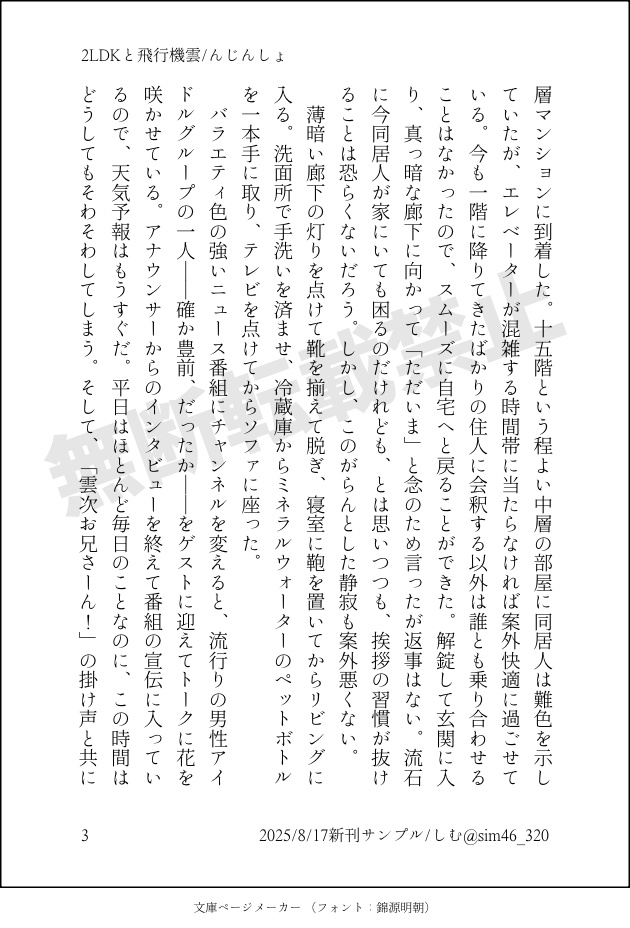 2LDKと飛行機雲/んじんしょ
層マンションに到着した。十五階という程よい中層の部屋に同居人は難色を示し
ていたが、エレベーターが混雑する時間帯に当たらなければ案外快適に過ごせて
いる。今も一階に降りてきたばかりの住人に会釈する以外は誰とも乗り合わせる
ことはなかったので、スムーズに自宅へと戻ることができた。解錠して玄関に入
り、真っ暗な廊下に向かって「ただいま」と念のため言ったが返事はない。流石
に今同居人が家にいても困るのだけれども、とは思いつつも、挨拶の習慣が抜け
ることは恐らくないだろう。しかし、このがらんとした静寂も案外悪くない。
薄暗い廊下の灯りを点けて靴を揃えて脱ぎ、寝室に鞄を置いてからリビングに
入る。洗面所で手洗いを済ませ、冷蔵庫からミネラルウォーターのペットボトル
を一本手に取り、テレビを点けてからソファに座った。
バラエティ色の強いニュース番組にチャンネルを変えると、流行りの男性アイ
ドルグループの一人――確か豊前、だったか――をゲストに迎えてトークに花を
咲かせている。アナウンサーからのインタビューを終えて番組の宣伝に入ってい
るので、天気予報はもうすぐだ。平日はほとんど毎日のことなのに、この時間は
どうしてもそわそわしてしまう。そして、「雲次お兄さーん！」の掛け声と共に
無断転載禁止
3
2025/8/17新刊サンプル/しむ@sim46_320
文庫ページメーカー（フォント：錦源明朝）